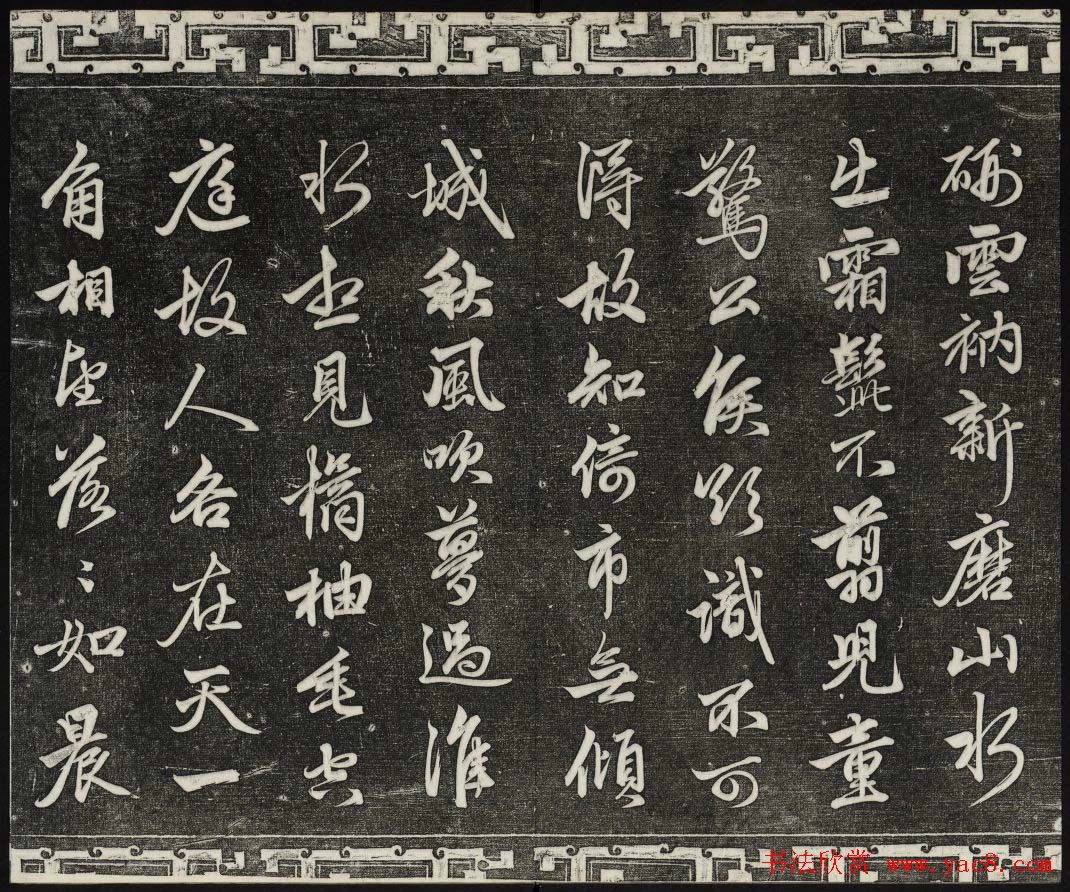 硎雲衲新磨山水
出霜髭不翦兒童
驚公侯欲識不可
得故知倚市無傾
城秋風吹夢過淮
水想見橘柚垂空
庭故人各在天一
角相望落〻如晨
书法欣赏 www.yac8.com